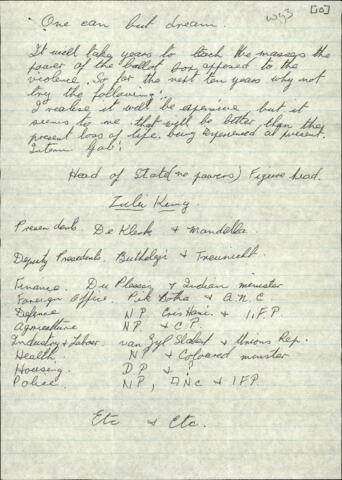 [10]
wg3
One can but dream.
It will take years to teach the masses the
power of the ballot box apposed to the
violence. So for the next ten years why not
try the following:
I realise it will be expensive but it
seems to me that will be better than the
present loss of life being experienced at present.
Interim Gov:
Head of State (no powers) Figure head.
Zulu King
Presendents. De Klerk & Mandella.
Deputy Presidents. Buthelezi & Treurnicht.
Finance. Du Plessey & Indian minister
Foreign Office. Pik Botha & A.N.C
Defence N P Cris Hani & I.F.P.
Agriculture NP & C.P.
Industry & Labour. van Zyl Slabert & Unions Rep.
Health. NP & Coloured minister
Housing. D P & ?
Police. NP, ANC & IFP
Etc & Etc.